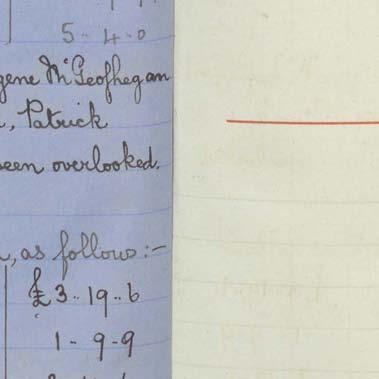 5 - 4 - 0
gene McGeoghegan
, Patrick
been overlooked.
, as follows :-
£3 .. 19 .. 6
1 - 9 - 9